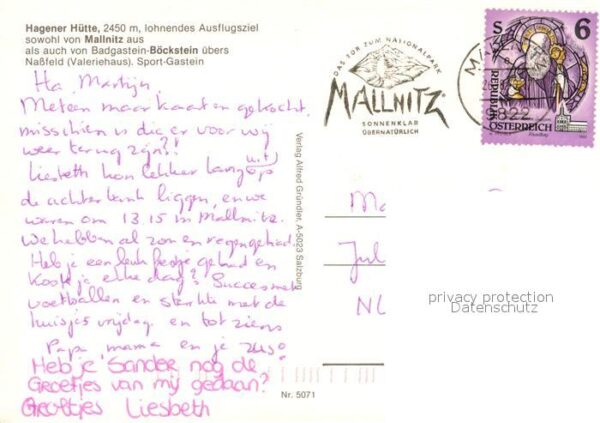 Hagener Hütte, 2450 m, lohnendes Ausflugsziel
sowohl von Mallnitz aus
als auch von Badgastein-Böckstein übers
Naßfeld (Valeriehaus). Sport-Gastein
Ha Martijn,
Meteen maar kaarten gekocht
misschien is die er voor wij
weer terug zijn?!
Liesbeth kon lekker lang op
de achterbank liggen, en we
waren om 13.15 in Mallnitz.
We hebben al zon en regen gehad.
Heb je een leuk feestje gehad en
kook je elke dag? Succes met
voetballen en sterkte met de
huisjes vrijdag en tot ziens
Papa mama en je zus!
Heb je Sander nog de
Groetjes van mij gedaan?
Groetjes Liesbeth
Verlag Alfred Gründler, A-5023 Salzburg
Nr. 5071
DAS TOR ZUM NATIONALPARK
MALLNITZ
SONNENKLAR
ÜBERNATÜRLICH
9822
S 6
REPUBLIK
ÖSTERREICH
Ma
Jul
NL
privacy protection
Datenschutz